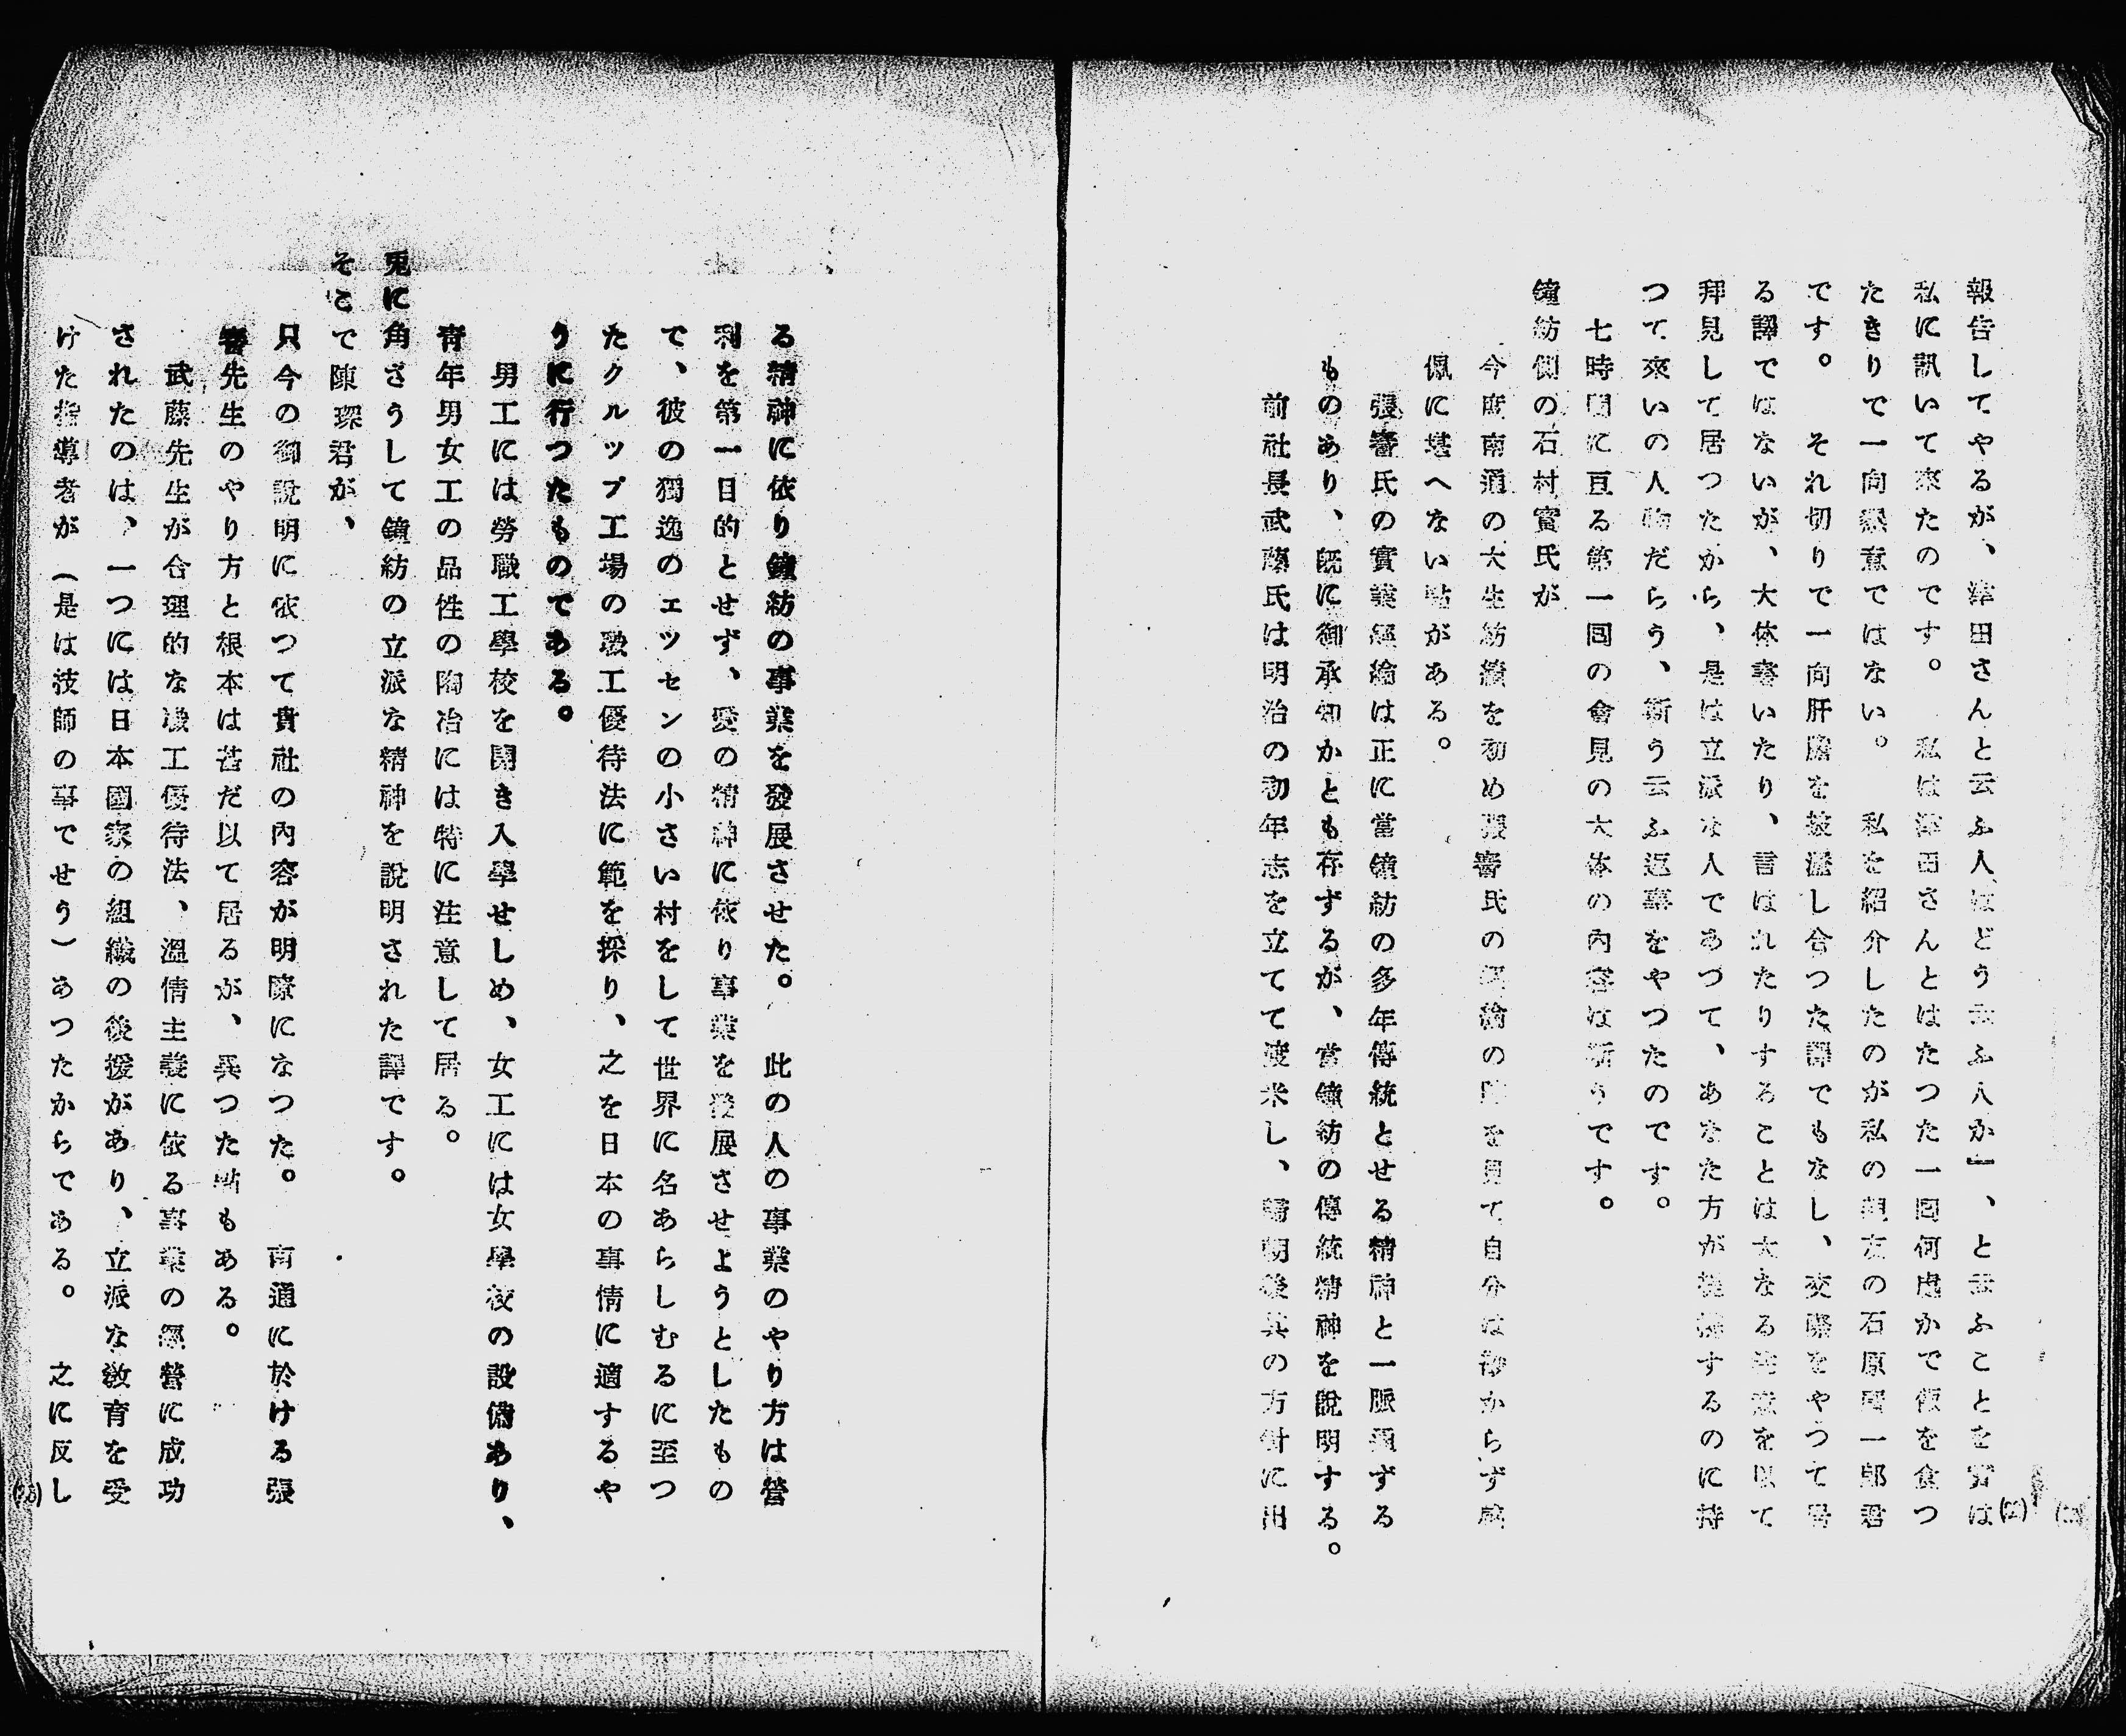 報告してやるが、津田さんと云ふ人はどう云ふ人か』、と云ふことを實は
私に訊いて來たのです。　私は津田さんとはたつた一囘何處かで飯を食つ
たきりで一向懇意ではない。　私を紹介したのが私の親友の石原廣一郎君
です。　それ切りで一向肝膽を披瀝し合つた譯でもなし、交際をやつて居
る譯ではないが、大体書いたり、言はれたりすることは大なる注意を以て
拜見して居つたから、是は立派な人であづて、あなた方が提携するのに持
つて來いの人物だらう、斯う云ふ返事をやつたのです。
七時間に亘る第一囘の會見の大体の內容は斯うです。
鐘紡側の石村實氏が
今度南通の大生紡績を初め張謇氏の經綸の跡を見て自分は尠からず感
佩に堪へない點がある。
張謇氏の實業經綸は正に當鐘紡の多年傳統とせる精神と一脈通ずる
ものあり、既に御承知かとも存ずるが、當鐘紡の傳統精神を說明する。
前社長武藤氏は明治の初年志を立てて渡米し、歸朝後其の方針に出
(22)
る精神に依り鐘紡の事業を發展させた。　此の人の事業のやり方は營
利を第一目的とせず、愛の精神に依り事業を發展させようとしたもの
で、彼の獨逸のエツセンの小さい村をして世界に名あらしむるに至つ
たクルツプ工場の職工優待法に範を採り、之を日本の事情に適するや
うに行つたものである。
男工には勞職工學校を開き入學せしめ、女工には女學校の設備あり、
青年男女工の品性の陶冶には特に注意して居る。
兎に角さうして鐘紡の立派な精神を說明された譯です。
そこで陳琛君が、
只今の御說明に依つて貴社の內容が明瞭になつた。　南通に於ける張
謇先生のやり方と根本は甚だ以て居るが、異つた點もある。
武藤先生が合理的な職工優待法、溫情主義に依る事業の經營に成功
されたのは、一つには日本國家の組織の後援があり、立派な敎育を受
けた指導者が（是は技師の事でせう）あつたからである。　之に反し
(23)